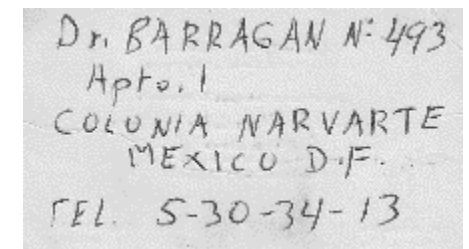 Dr. BARRAGAN Nº 493
Apto. 1
COLONIA NARVARTE
MEXICO D.F.
TEL. 5-30-34-13